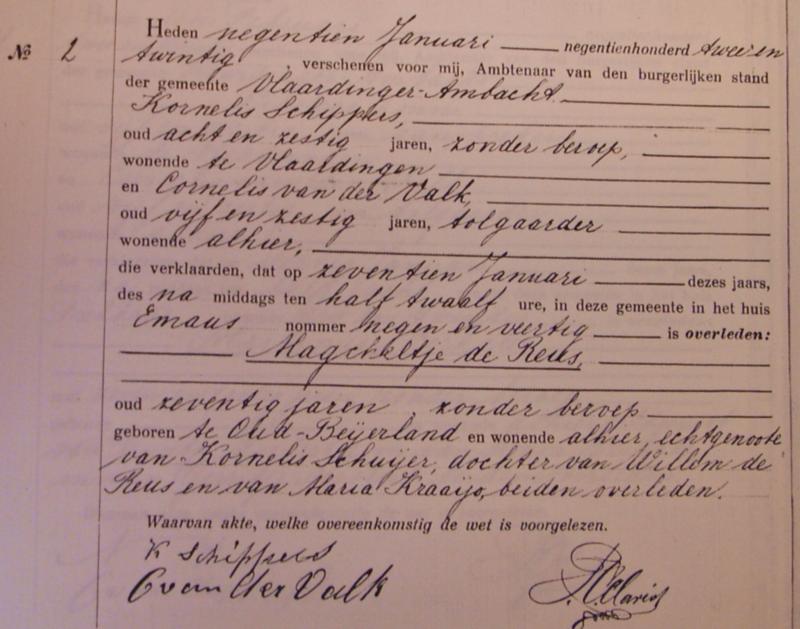 No 2
Heden negentien Januari negentienhonderd twee en
twintig, verschenen voor mij, Ambtenaar van den burgerlijken stand
der gemeente Vlaardinger-Ambacht
Kornelis Schippers,
oud acht en zestig jaren, zonder beroep,
wonende te Vlaardingen
en Cornelis van der Valk,
oud vijf en zestig jaren, tolgaarder
wonende alhier,
die verklaarden, dat op zeventien Januari dezes jaars,
des na middags ten half twaalf ure, in deze gemeente in het huis
Emaus nommer negen en veertig is overleden:
Magcheltje de Reus,
oud zeventig jaren, zonder beroep
geboren te Oud-Beijerland en wonende alhier, echtgenoote
van Kornelis Schuijer, dochter van Willem de
Reus en van Maria Kraaijo, beiden overleden.
Waarvan akte, welke overeenkomstig de wet is voorgelezen.
K Schippers
C van der Valk